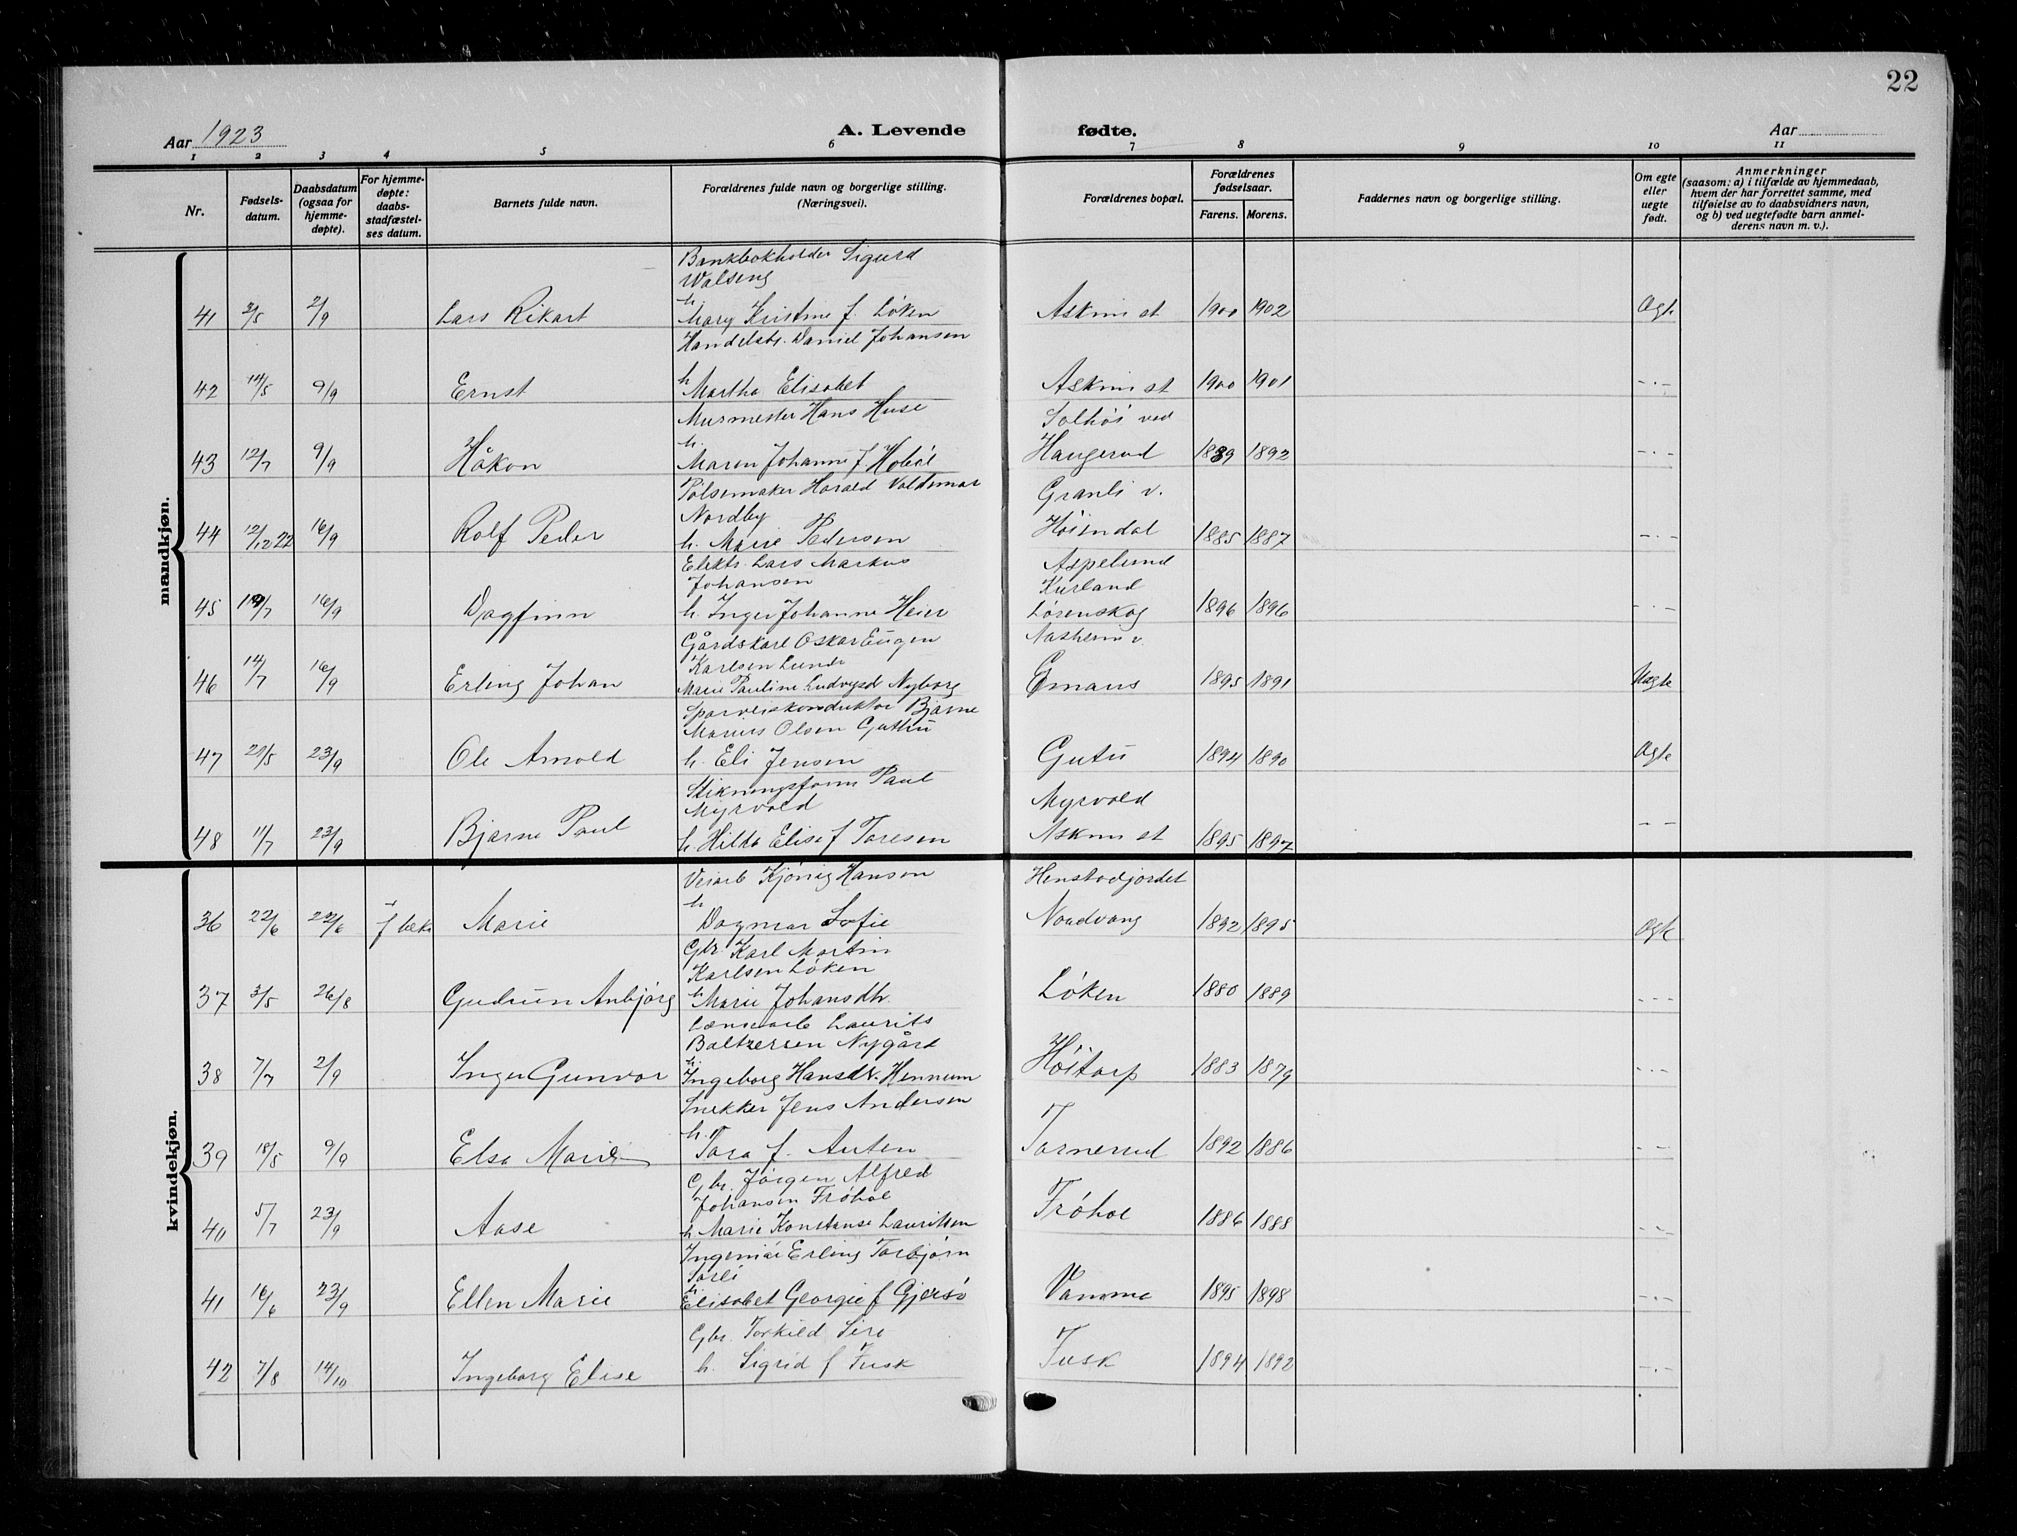 22
Aar 1923 A. Levende fødte. Aar
1 2 3 4 5 6 7 8 9 10 11
Nr. Fødselsdatum. Daabsdatum (ogsaa for hjemmedøpte). For hjemmedøpte: daabsstadfæstelses datum. Barnets fulde navn. Forældrenes fulde navn og borgerlige stilling. (Næringsvei). Forældrenes bopæl. Forældrenes fødselsaar. Farens. Morens. Faddernes navn og borgerlige stilling. Om egte eller uegte født. Anmerkninger (saasom: a) i tilfælde av hjemmedaab, hvem der har forrettet samme, med tilføielse av to daabsvidners navn, og b) ved uegtefødte barn anmelderens navn m. v.).
mandkjøn.
Bankbokholder Sigurd
Walseng
h.
41 3/5 2/9 Lars Rikart Mary Kristine f. Løken Askim st 1900 1902 Ægte
Handelsb. Daniel Johansen
42 14/5 9/9 Ernst h Martha Elisabet Askim st 1900 1901 -.-
Murmester Hans Huse Solhøi ved
h.
43 12/7 9/9 Håkon Maren Johanne f. Hobøl Haugerud 1889 1892 -.-
Pølsemaker Harald Valdemar Granli v.
Nordby
44 12/12 22 16/9 Rolf Peder h. Marie Pedersen Høiendal 1885 1887 -.-
Elektr. Lars Markus Aspelund
Johansen Kurland
45 16/9 Dagfinn h. Inger Johanne Heier Lørenskog 1896 1896 -.-
Gårdskarl Oskar Eugen v
Karlsen Lunde
46 14/7 16/9 Erling Johan Marie Pauline Ludvigsd Nyborg Emaus 1895 1891 Uægte
Sporveiskonduktør Bjarne
Marius Olsen Guttu
47 29/5 23/9 Ole Arnold h. Eli Jensen Gutu 1894 1890 Ægte
Stikningsform Paul
Myrvold Myrvold
48 11/7 23/9 Bjarne Paul h. Hilda Elise f Toresen Askim st 1895 1897 - -
kvindekjøn.
Veiarb Kjønig Hansen Henstadjordet
h
36 22/6 22/6 f. Marie Dagmar Sofie Nordvang 1892 1895 Ægte
Gbr. Karl Martin
Karlsen Løken
37 3/5 26/8 Gudrun Anbjørg h Marie Johansdtr. Løken 1880 1889 ---
Laurits
Baltzersen Nygård
h.
38 7/7 2/9 Inger Gunvor Ingeborg Hansdtr. Hennum Høitorp 1883 1879 -.-
Snekker Jens Andersen
h.
39 18/5 9/9 Elsa Marie Tora f. Auten Tornerud 1892 1886 - -
Gbr. Jørgen Alfred
Johansen Frøhol
40 5/7 23/9 Aase h. Marie Konstanse Lauritsen Frøhol 1886 1888 - -
Ingeniør Erling Torbjørn
Sorli
h.
41 16/6 23/9 Ellen Marie Elisabet Georgie f Gjersø Vamma 1895 1898 -.-
Gbr. Torkild Sire
42 7/8 14/10 Ingeborg Elise h. Sigrid f Fusk Fusk 1894 1892 -.-